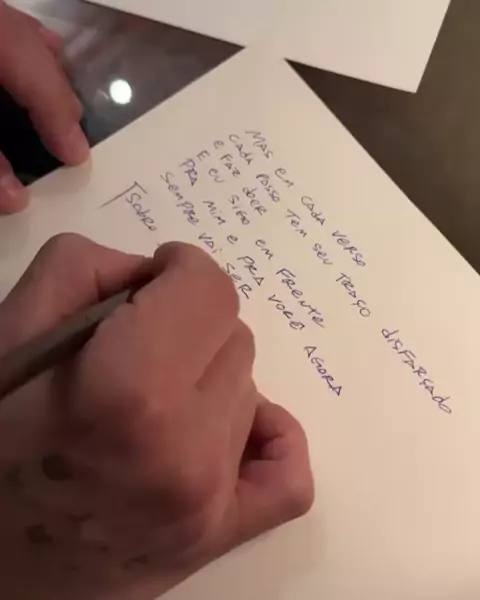 MAS EM CADA VERSO
CADA PASSO TEM SEU TRAÇO DISFARÇADO
E FAZ DOER
E EU SIGO EM FRENTE
PRA MIM E PRA VOCÊ AGORA
SEMPRE VAI SER